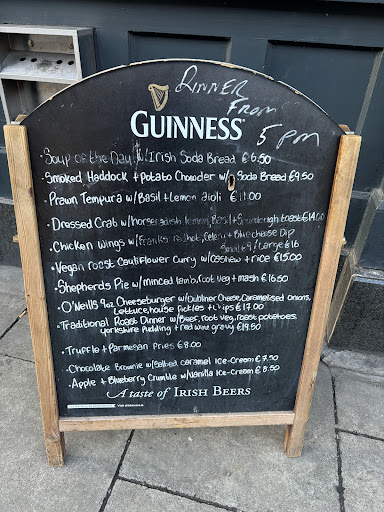 DINNER
FROM
5pm
GUINNESS
• Soup of the Day w/ Irish Soda Bread €6.50
• Smoked Haddock + Potato Chowder w/ Soda Bread €9.50
• Prawn Tempura w/ Basil + Lemon aioli €11.00
• Dressed Crab w/ horseradish, lemon, Basil + toast €14.00
• Chicken Wings w/ Franks redhot, Celery + Bluecheese Dip
Small €9 / Large €16
• Vegan roast Cauliflower Curry w/ cashew + rice €15.00
• Shepherds Pie w/ minced lamb, root veg + mash €16.50
• O'Neills 9oz Cheeseburger w/ Dubliner Cheese, Caramelised onions,
Lettuce, house pickles + chips €17.00
• Traditional Roast Dinner w/ Beef, root veg, roast potatoes,
Yorkshire Pudding + red wine gravy €19.50
• Truffle + Parmesan Fries €8.00
• Chocolate Brownie w/ Salted caramel Ice-Cream €7.50
• Apple + Blueberry Crumble w/ Vanilla Ice-Cream €8.50
A taste of IRISH BEERS